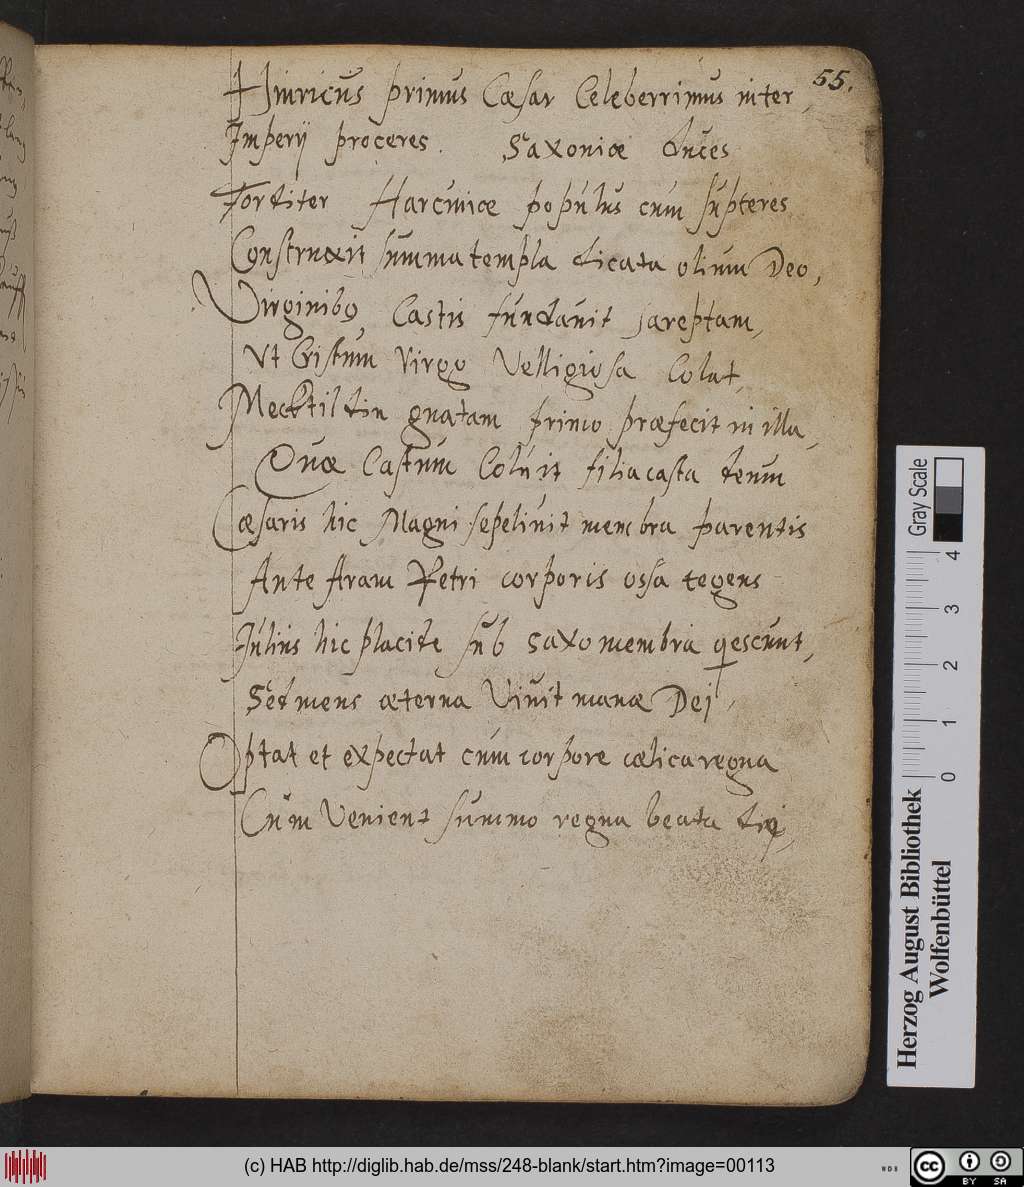 55.
Hinricus primus Cæsar Celeberrimus inter,
Imperij proceres. Saxoniæ Duces
Fortiter Harciniæ populus cum supteres
Construxit summa templa dicata olium Deo,
Virginibq Castis fundauit jareptam,
Vt Cristum Virgo Relligiosa Colat,
Mecktildin gnatam primo præfecit in illa,
Quæ Castrum Coluit filia casta deum
Cæsaris hic Magni sepeliuit membra parentis
Ante Aram Petri corporis ossa tegens
Julius hic placide sub saxo membra qescunt,
Sed mens æterna Viuit manæ Dej,
Optat et expectat cum corpore cælica regna
Cum Venient summo regna beata die,
Gray Scale
0 1 2 3 4
Herzog August Bibliothek
Wolfenbüttel
(c) HAB http://diglib.hab.de/mss/248-blank/start.htm?image=00113
WDB
cc BY SA